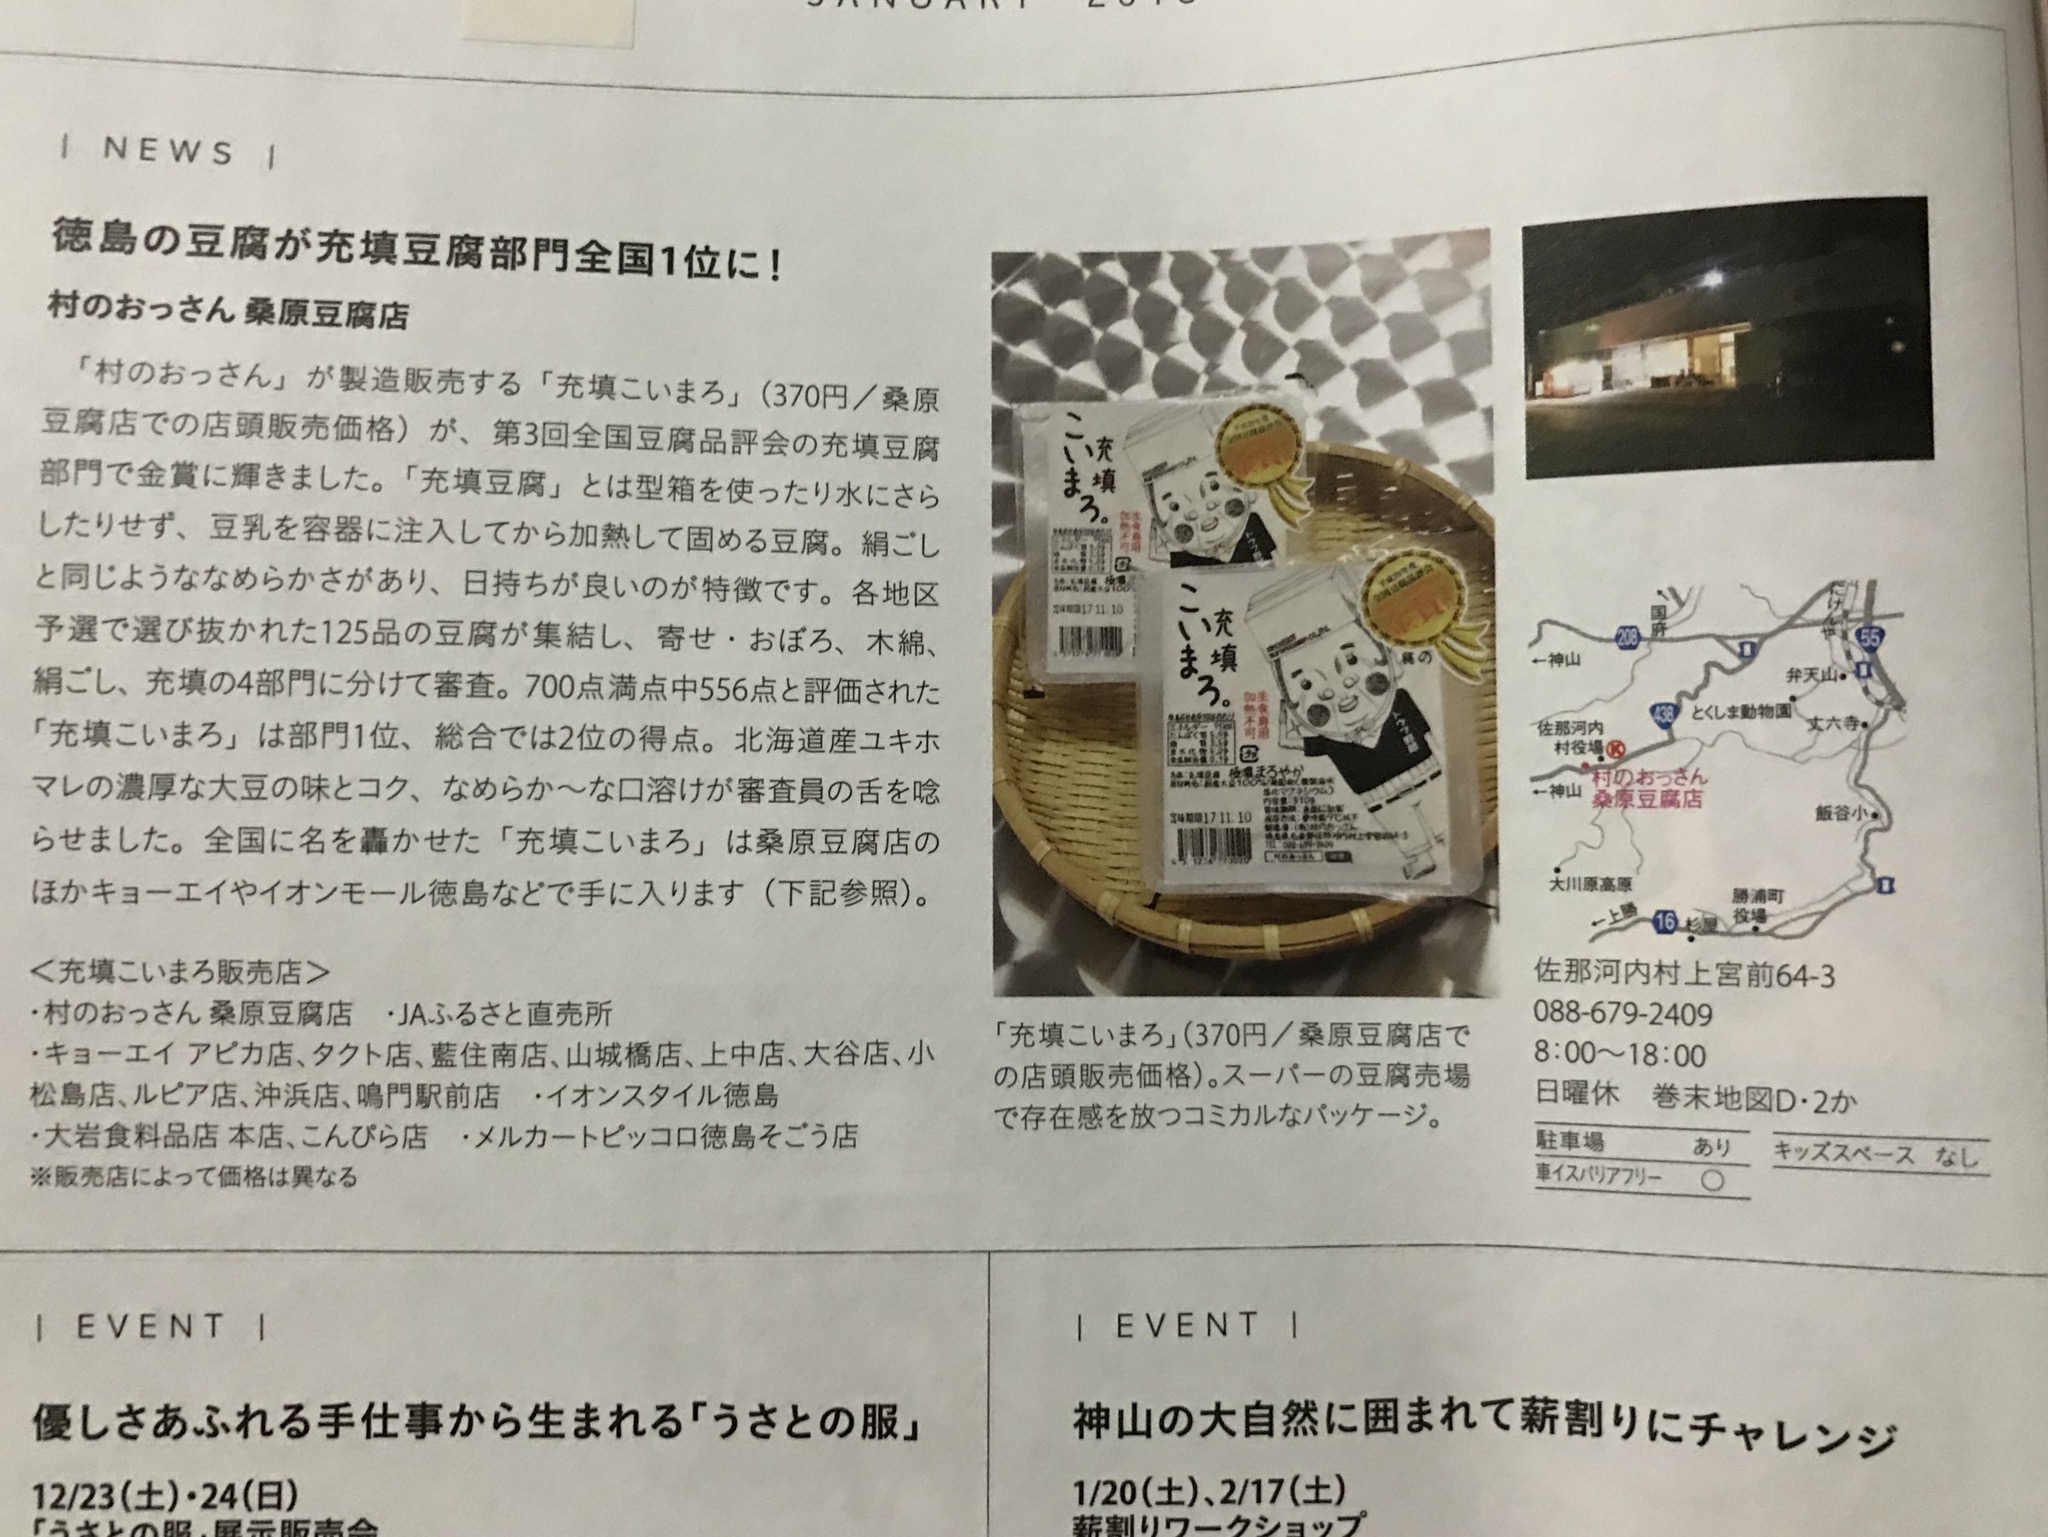 | NEWS |
徳島の豆腐が充填豆腐部門全国1位に！
村のおっさん 桑原豆腐店
「村のおっさん」が製造販売する「充填こいまろ」（370円／桑原
豆腐店での店頭販売価格）が、第3回全国豆腐品評会の充填豆腐
部門で金賞に輝きました。「充填豆腐」とは型箱を使ったり水にさら
したりせず、豆乳を容器に注入してから加熱して固める豆腐。絹ごし
と同じようななめらかさがあり、日持ちが良いのが特徴です。各地区
予選で選び抜かれた125品の豆腐が集結し、寄せ・おぼろ、木綿、
絹ごし、充填の4部門に分けて審査。700点満点中556点と評価された
「充填こいまろ」は部門1位、総合では2位の得点。北海道産ユキホ
マレの濃厚な大豆の味とコク、なめらか〜な口溶けが審査員の舌を唸
らせました。全国に名を轟かせた「充填こいまろ」は桑原豆腐店の
ほかキョーエイやイオンモール徳島などで手に入ります（下記参照）。
＜充填こいまろ販売店＞
・村のおっさん 桑原豆腐店　・JAふるさと直売所
・キョーエイ アピカ店、タクト店、藍住南店、山城橋店、上中店、大谷店、小
松島店、ルピア店、沖浜店、鳴門駅前店　・イオンスタイル徳島
・大岩食料品店 本店、こんぴら店　・メルカートピッコロ徳島そごう店
※販売店によって価格は異なる
充填
こいまろ。
生食専用
加熱不可
17.11.10
充填
こいまろ。
生食専用
加熱不可
賞味期限17 11. 10
「充填こいまろ」（370円／桑原豆腐店で
の店頭販売価格）。スーパーの豆腐売場
で存在感を放つコミカルなパッケージ。
国府
208
55
←神山
弁天山
438
とくしま動物園
丈六寺
佐那河内
村役場
村のおっさん
桑原豆腐店
←神山
飯谷小
大川原高原
勝浦町
役場
←上勝
16
杉屋
佐那河内村上宮前64-3
088-679-2409
8：00〜18：00
日曜休　巻末地図D・2か
駐車場　あり
キッズスペース　なし
車イスバリアフリー　○
| EVENT |
優しさあふれる手仕事から生まれる「うさとの服」
12/23（土）・24（日）
「うさとの服」展示販売会
| EVENT |
神山の大自然に囲まれて薪割りにチャレンジ
1/20（土）、2/17（土）
薪割りワークショップ